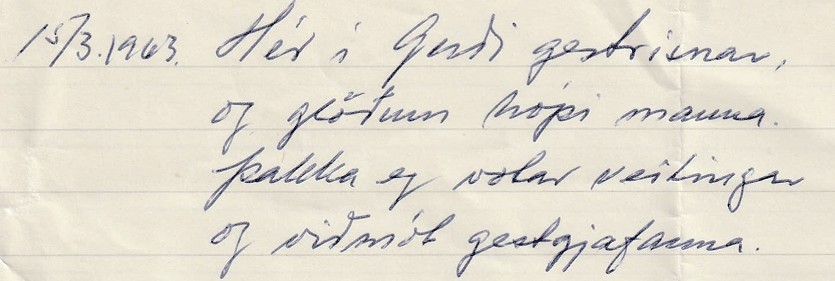 15/3.1963. Hér í Gerði gestrisnar,
og glöðum hópi manna.
þakka eg valar veitingar
og viðmót gestgjafanna.